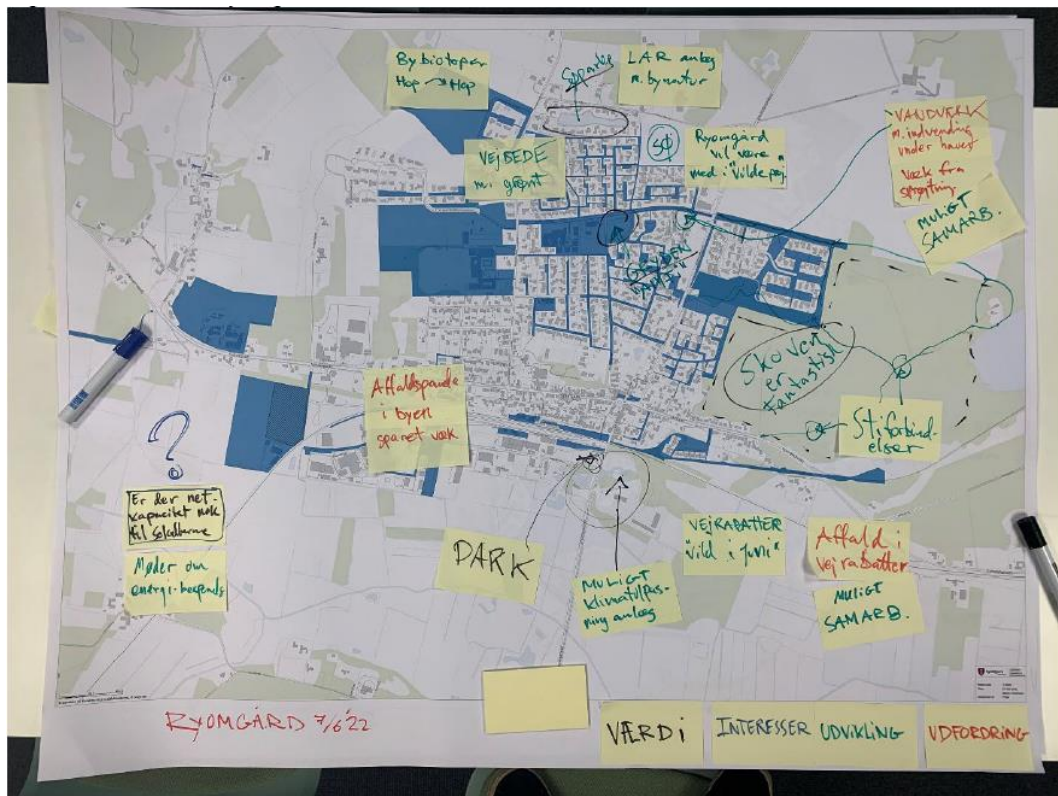 Bybiotoper
Hop → Hop
LAR anlæg
m. bynatur
VEJBEDE
m. grønt
SØ
Ryomgård
vil være
med i "Vilde
VANDVÆRK
m. indvending
under navet
Væk fra
MULIGT
SAMARB.
Skoven
er
fantastisk
Stiforbind-
elser
Affaldspande
i byen
sparet væk
?
Er der net-
kapacitet nok
til
Møder om
PARK
MULIGT
klimatilpas-
ning anlæg
VEJRABATTER
"Vild i juni"
Affald i
vejrabatter
MULIGT
SAMARB.
RYOMGÅRD 7/6 '22
VÆRDI
INTERESSER UDVIKLING
UDFORDRING